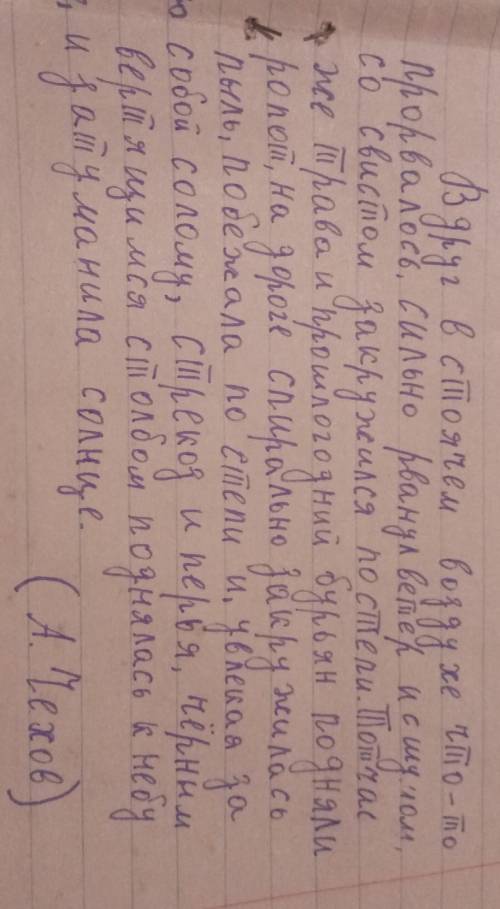 Вдруг в стоячем воздухе что-то
прорвалось, сильно рванул ветер и с шумом,
со свистом закружился по степи. Тотчас
же трава и прошлогодний бурьян подняли
ропот, на дороге спирально закружилась
пыль, побежала по степи и, увлекая за
собой солому, стрекоз и перья, чёрным
вертящимся столбом поднялась к небу
и затуманила солнце.
(А. Чехов)